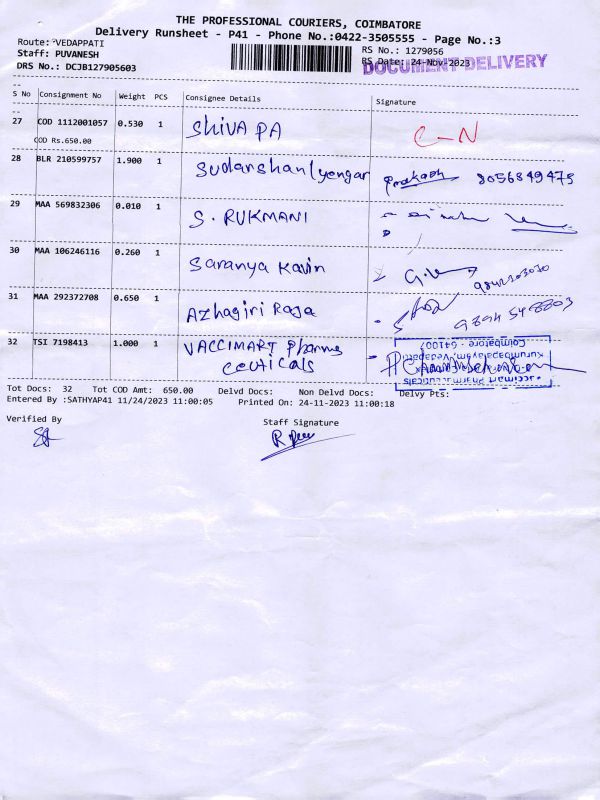 THE PROFESSIONAL COURIERS, COIMBATORE
Delivery Runsheet - P41 - Phone No.:0422-3505555 - Page No.:3
Route: VEDAPPATI
Staff: PUVANESH
RS No.: 1279056
DRS No.: DCJB127905603
RS Date: 24-Nov-2023
DOCUMENT DELIVERY
S No Consignment No Weight PCS Consignee Details Signature
27 COD 1112001057 0.530 1 SHIVA PA C-N
COD Rs.650.00
28 BLR 210599757 1.900 1 Sudarshan Iyengar Prakash 8056849475
29 MAA 569832306 0.010 1 S. RUKMANI
30 MAA 106246116 0.260 1 Saranya Kavin
31 MAA 292372708 0.650 1 Azhagiri Raja
32 TSI 7198413 1.000 1 VACCIMART Pharma
ceuticals
Tot Docs: 32 Tot COD Amt: 650.00 Delvd Docs: Non Delvd Docs: Delvy Pts:
Entered By :SATHYAP41 11/24/2023 11:00:05 Printed On: 24-11-2023 11:00:18
Verified By Staff Signature